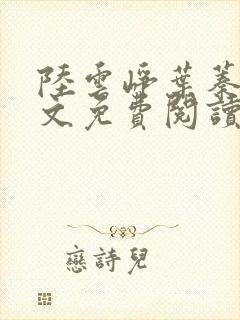 陸雲崢葉蓁
文免費閱讀
戀詩兒